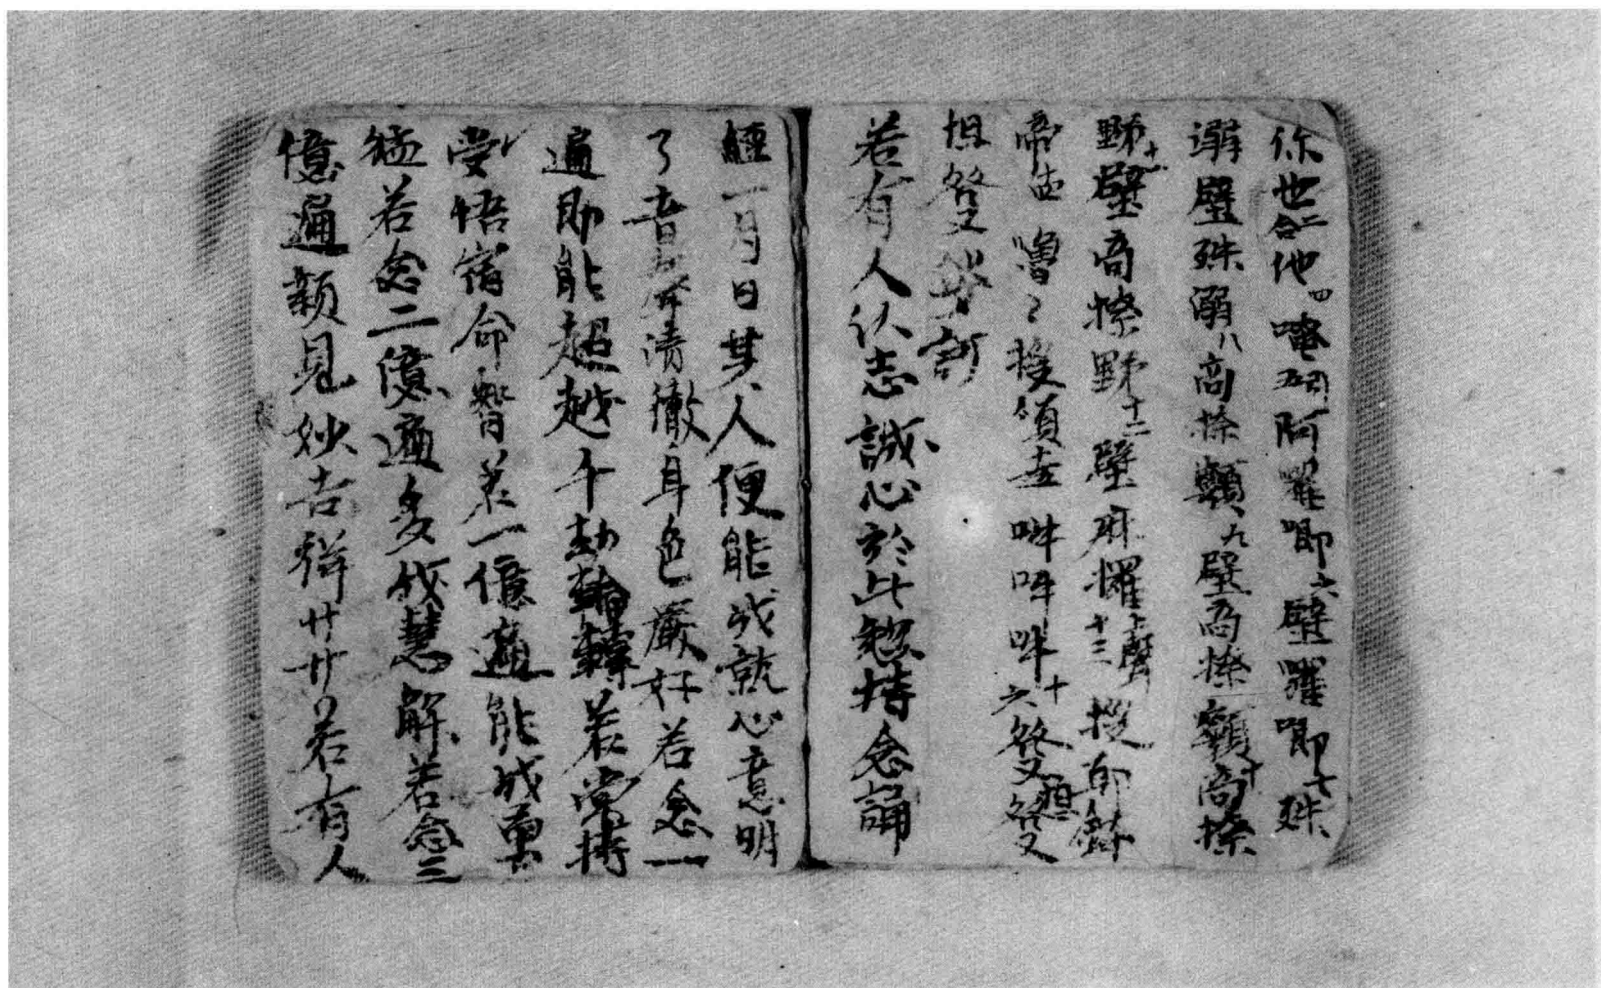 你也二合他四唵五引阿羅唧六壁羅唧七殊
溺壁殊溺八高捺顙九壁高捺顙十高捺
野十一壁高捺野十二壁麻擢上聲十三授
帝 嚕〻授領 吽吽吽十六癹 癹
怛癹 訶
若有人伏志誠心於此惣持念誦
經一月日其人便能成就心意明
了音 清徹身色嚴好若念一
遍即能超越千劫輪轉若常持
受悟宿命智若一億遍能成勇
猛若念二億遍多伐慧解若念三
億遍親見妙吉祥廿廿若有人